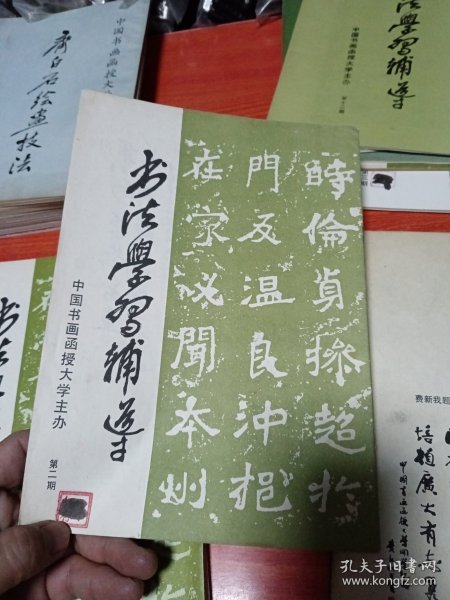 中国书画函授大
齐白石绘画技法
法學習輔導
中国书画函授大学主办
第十二期
书法學習輔導
中国书画函授大学主办
第二期
時倫貞操超於
門及温良沖挹
在家必聞本州
书法
费新我题
培植廣大有
孔夫子旧书网